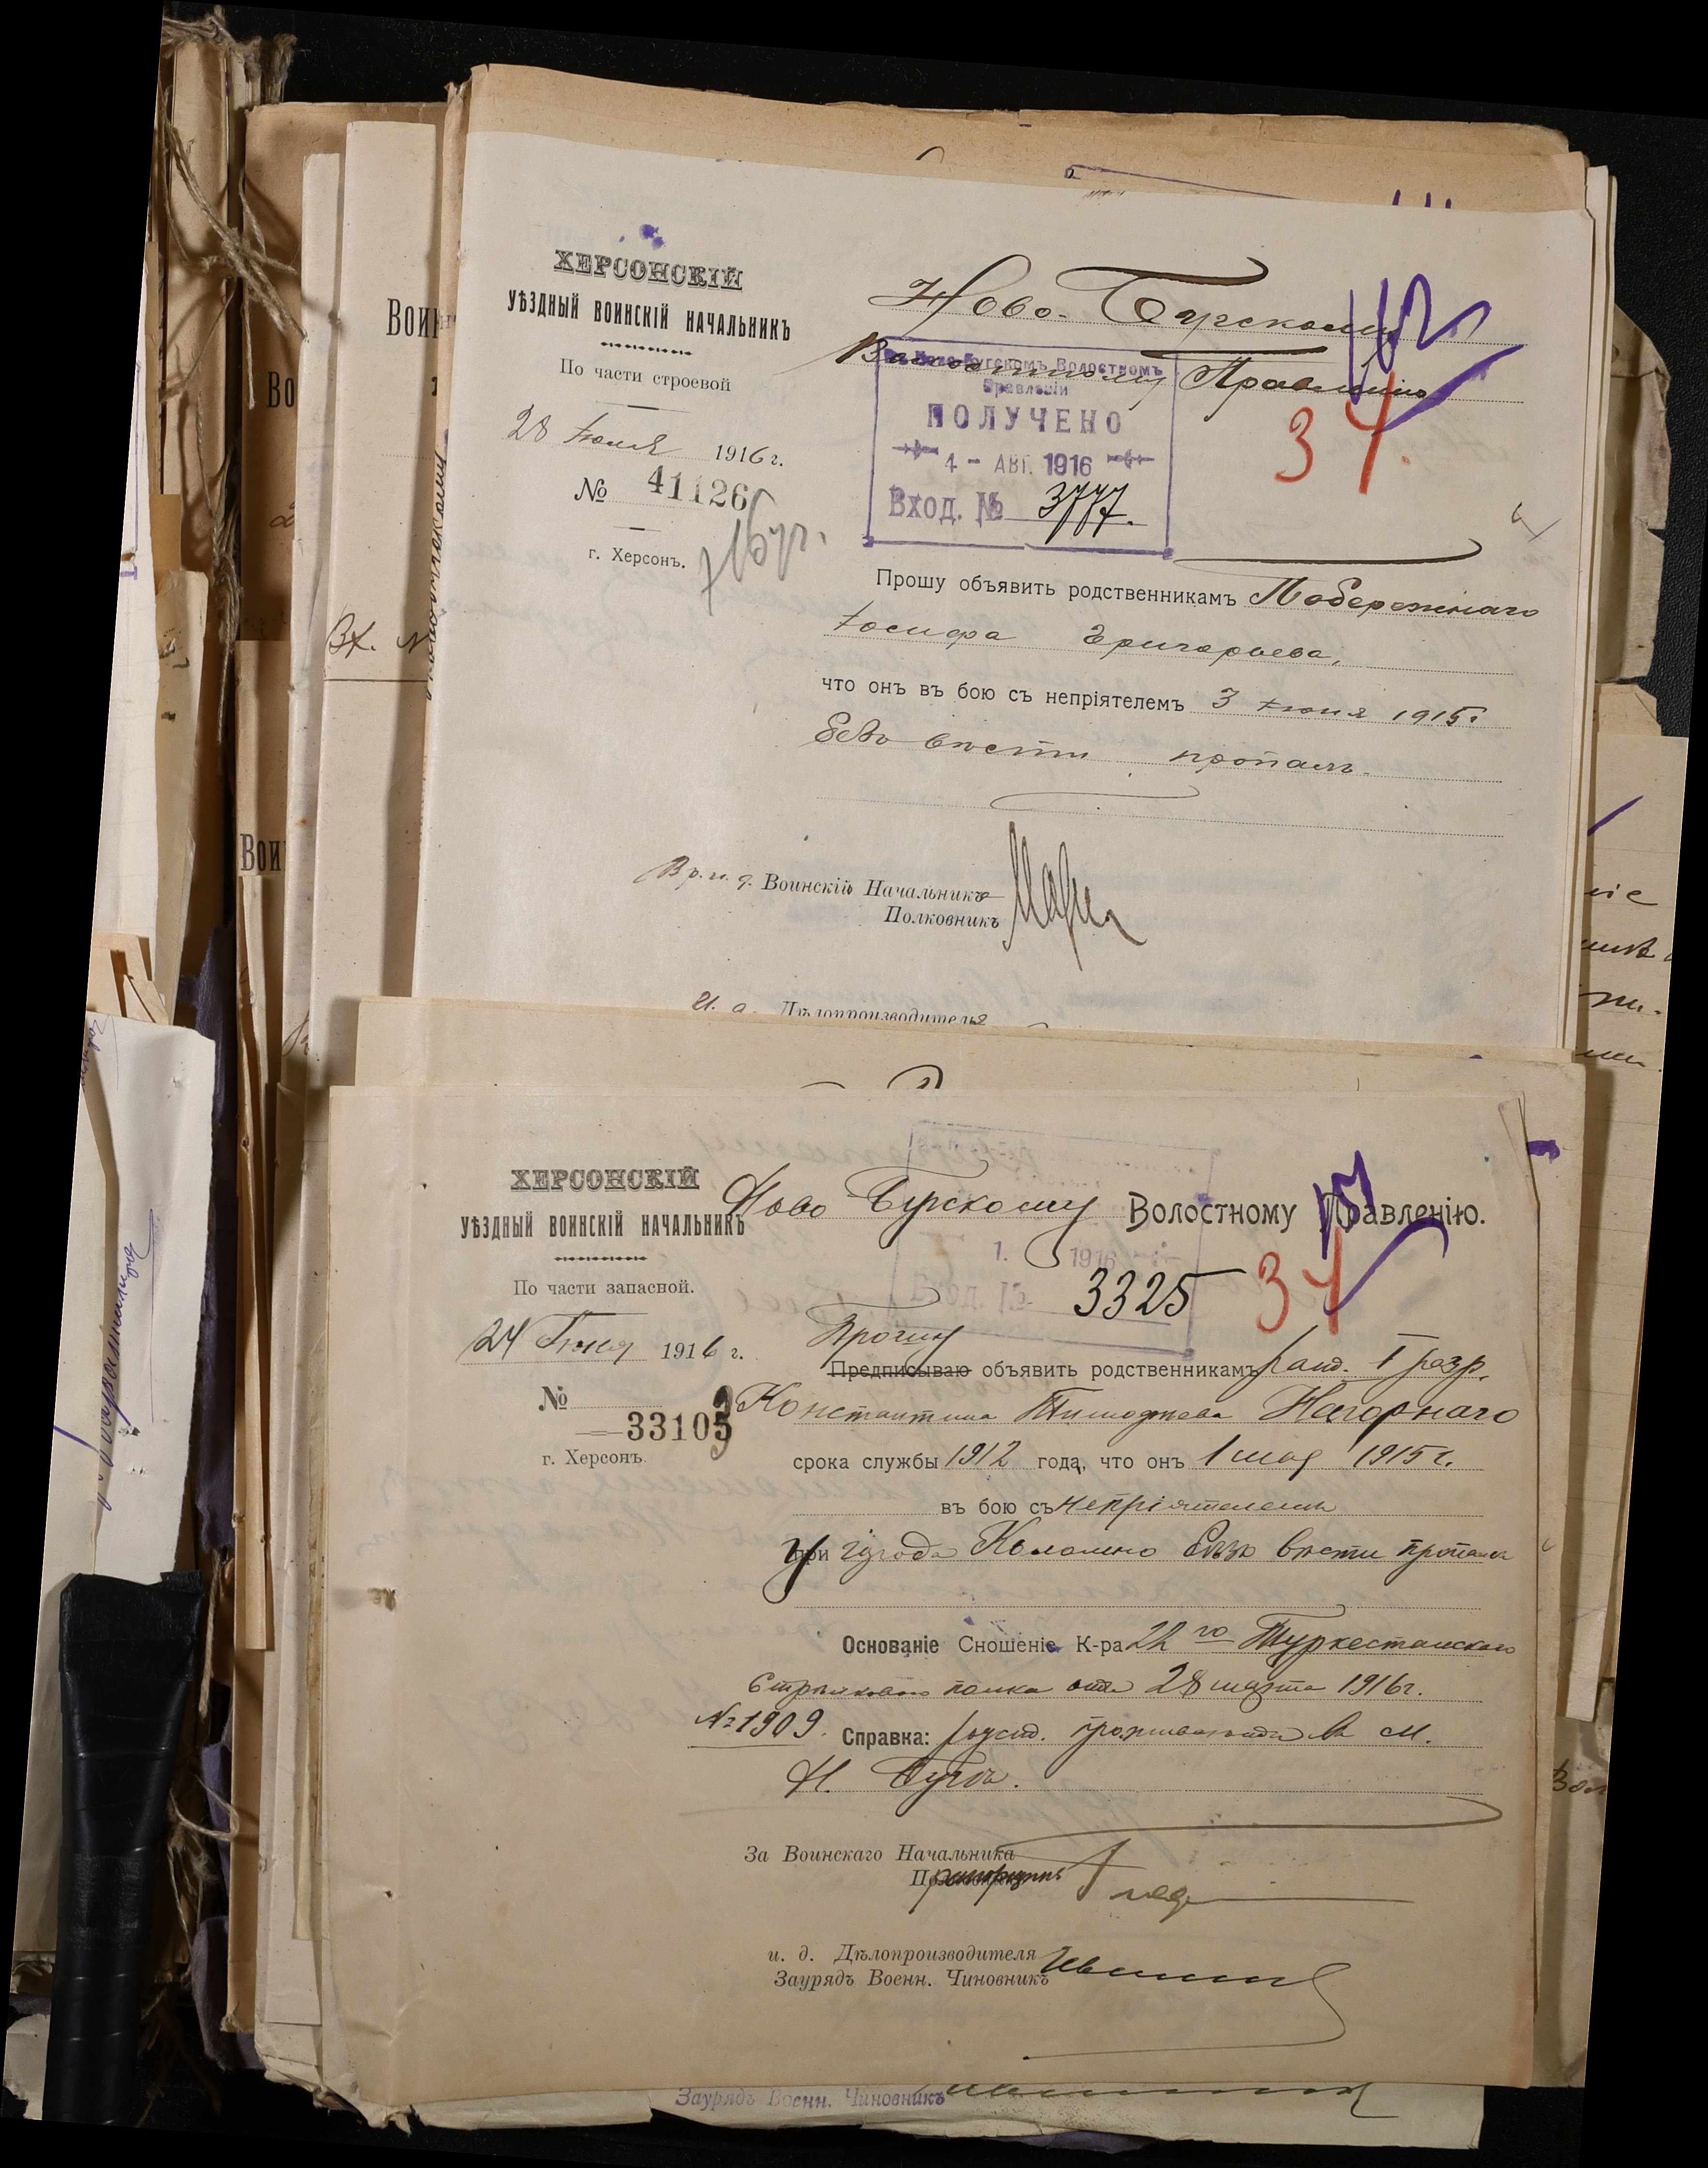 ХЕРСОНСКІЙ
УѢЗДНЫЙ ВОИНСКІЙ НАЧАЛЬНИКЪ
По части строевой
28 Іюля 1916 г.
№ 41126
г. Херсонъ.
Ново-Бугскому
Волостному Правленію
162
34.
Въ Ново-Бугскомъ Волостномъ
Правленіи
ПОЛУЧЕНО
4 - АВГ. 1916
Вход. № 3777.
Прошу объявить родственникамъ Побережнаго
Іосифа Григорьева,
что онъ въ бою съ непріятелемъ 3 Іюня 1915 г.
безъ вѣсти пропалъ.
Вр. и. д. Воинскій Начальникъ
Полковникъ
И. д. Дѣлопроизводителя
Вои
Во
Вои
Вх. №
ХЕРСОНСКІЙ
УѢЗДНЫЙ ВОИНСКІЙ НАЧАЛЬНИКЪ
По части запасной.
24 Іюня 1916 г.
№ 33103
г. Херсонъ
Ново Бугскому Волостному Правленію.
34
1. 1916
Вход. № 3325
Прошу
Предписываю объявить родственникамъ ранд. I разр.
Константина Тимофеева Нагорнаго
срока службы 1912 года, что онъ 1 мая 1915 г.
въ бою съ непріятелемъ
у города Коломно безъ вѣсти пропалъ
Основаніе Сношеніе К-ра 22 го Туркестанскаго
Стрѣлковаго полка отъ 28 марта 1916 г.
№ 1909. Справка: въ м.
Н. Бугъ.
За Воинскаго Начальника
и. д. Дѣлопроизводителя
Заурядъ Военн. Чиновникъ
Заурядъ Военн. Чиновникъ